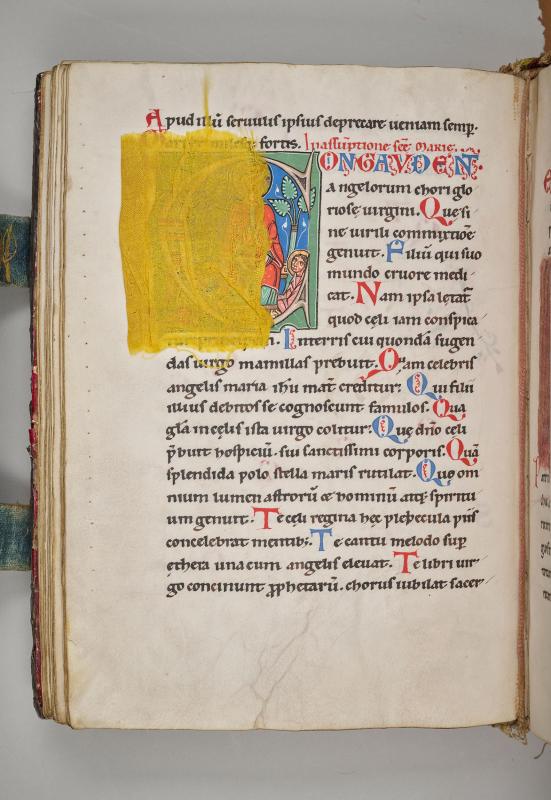 Apud illū seruulis ipsius deprecare ueniam semp.
fortis. In assūptione scē Marie.
ONGAVDENT
angelorum chori glo
riose uirgini. Que si
ne uirili commixtioē
genuit. Filiū qui suo
mundo cruore medi
cat. Nam ipsa lętat̄
quod cęli iam conspica
In terris cui quondā sugen
das uirgo mamillas prebuit. Quam celebris
angelis maria ih̄u mat̄ creditur: Qui filii
illius debitos se cognoscunt famulos. Qua
gl̄a in cęlis ista uirgo colitur: Quę dn̄o cęli
p̄buit hospiciū. sui sanctissimi corporis. Quā
splendida polo stella maris rutilat. Quę om
nium lumen astrorū & hominū atq; spiritu
um genuit. Te cęli regina hęc plebecula piis
concelebrat mentib;. Te cantu melodo sup
ethera una cum angelis eleuat. Te libri uir
go concinunt ꝓphetarū. chorus iubilat sacer